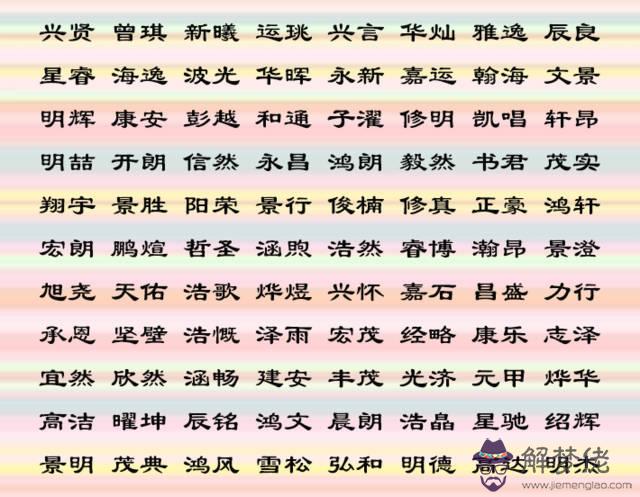 兴贤 曾琪 新曦 运珧 兴言 华灿 雅逸 辰良
星睿 海逸 波光 华晖 永新 嘉运 翰海 文景
明辉 康安 彭越 和通 子濯 修明 凯唱 轩昂
明喆 开朗 信然 永昌 鸿朗 毅然 书君 茂实
翔宇 景胜 阳荣 景行 俊楠 修真 正豪 鸿轩
宏朗 鹏煊 哲圣 涵煦 浩然 睿博 瀚昂 景澄
旭尧 天佑 浩歌 烨煜 兴怀 嘉石 昌盛 力行
承恩 坚壁 浩慨 泽雨 宏茂 经略 康乐 志泽
宜然 欣然 涵畅 建安 丰茂 光济 元甲 烨华
高洁 曜坤 辰铭 鸿文 晨朗 浩晶 星驰 绍辉
景明 茂典 鸿风 雪松 弘和 明德 高达 明杰
解梦佬
www.jiemenglao.com